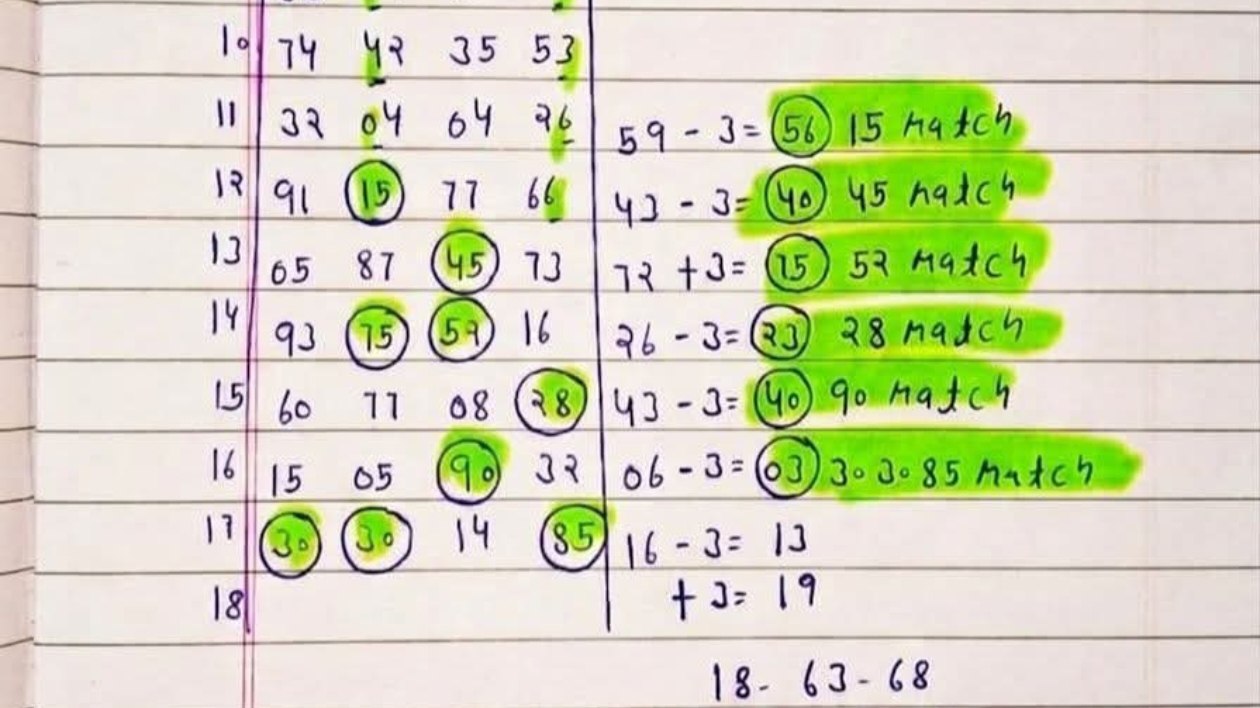 10 74 42 35 53
11 32 04 04 26 59 - 3= 56 15 Match
12 91 15 77 66 43 - 3= 40 45 Match
13 05 87 45 73 72 +3= 75 52 Match
14 93 75 52 16 26 - 3= 23 28 Match
15 60 77 08 28 43 - 3= 40 90 Match
16 15 05 90 32 06 - 3= 03 30 30 85 Match
17 30 30 14 85 16 - 3= 13
18 + 3= 19
18- 63-68